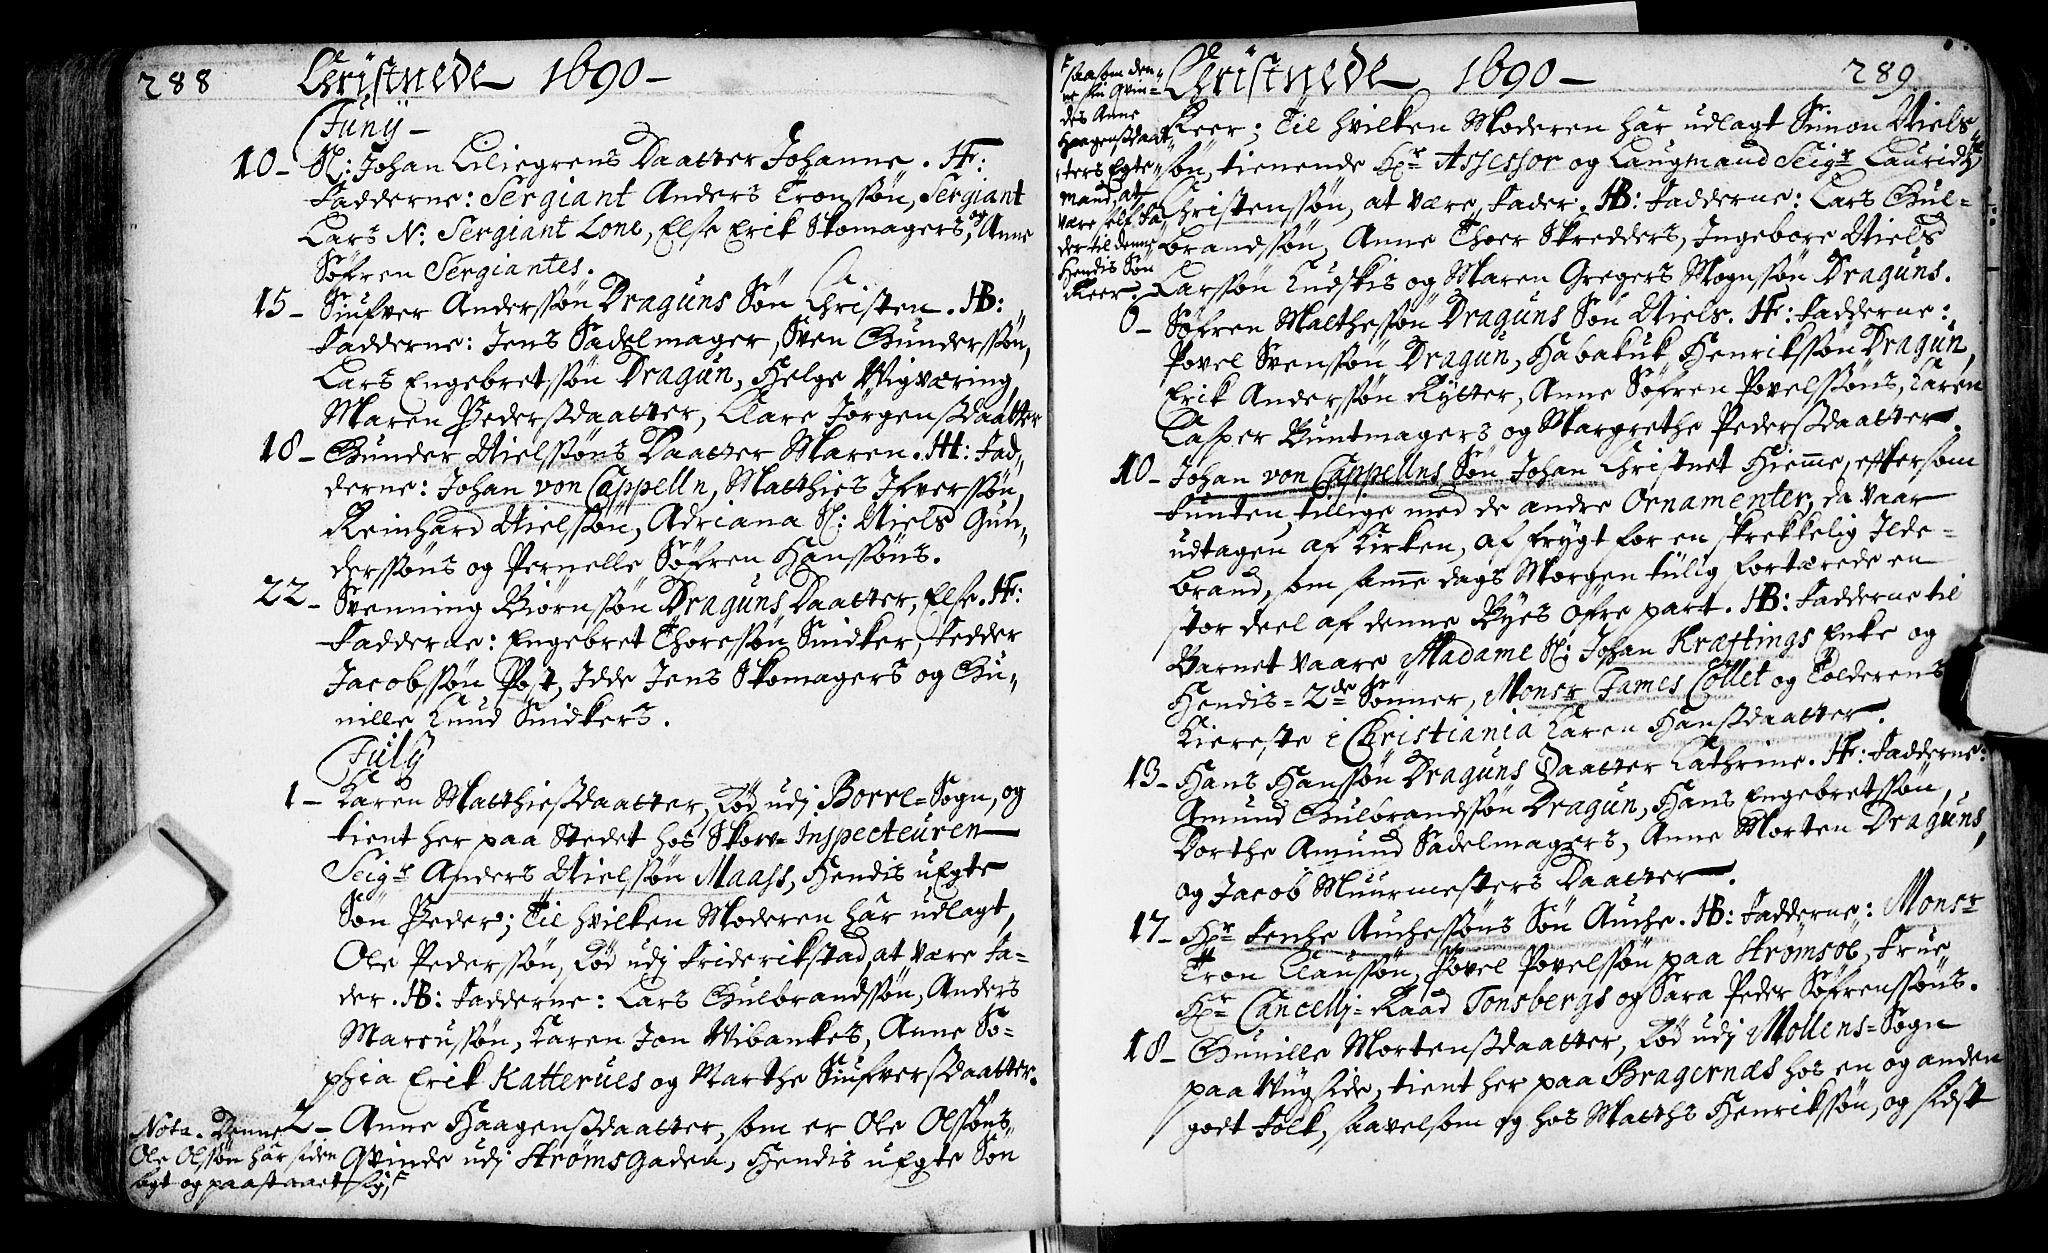 288
Christnede 1690
Junij
10 Sl: Johan Liliegrens Daatter Johanne. HF:
Fadderne: Sergiant Anders Tronssøn, Sergiant
Lars N. Sergiant Lone, Else Erik Skomagers, og Anne
Søfren Sergiantes.
15 Siufver Anderssøn Draguns Søn Christen. HB:
Fadderne: Jens Sadelmager, Sven Gunderssøn,
Lars Engebretssøn Dragun, Helge Wigværing,
Maren Pederssdaatter, Clare Jørgenssdaatter
18 Gunder Nielssøns Daatter Maren. HH: Fad-
derne: Johan von Cappelln, Matthies Ifverssøn,
Reinhard Nielssøn, Adriana Sl: Niels Gun-
derssøns og Pernelle Søfren Hanssøns.
22 Svenning Biørnssøn Draguns Daatter, Else. HF:
Fadderne: Engebret Thoressøn Snidker, Peder
Jacobssøn Post, Idde Jens Skomagers og Gu-
nille Knud Snidkers.
July
1 Karen Matthiessdaatter, Fød udj Borre-Sogn, og
tient her paa Stedet hos Skov-Inspecteuren
Seigr Anders Nielssøn Maass, Hendis uEgte
Søn Peder; Til hvilken Moderen har udlagt,
Ole Pederssøn, Fød udj Friderikstad, at være Fa-
der. HB: Fadderne: Lars Gulbrandssøn, Anders
Marcussøn, Karen Jon Wibankes, Anne So-
phia Erik Katterues og Marthe Siufverssdaatter.
2 Anne Haagenssdaatter, som er Ole Olssøns
Qvinde udj Strømsgaden, Hendis uEgte Søn
Nota. Denne
Ole Olssøn har siden
sagt og paastaaet sig,
saasom den-
ne sin Qvin-
des Anne
Haagenssdaat-
ters Egte-
mand, at
være self Fa-
der til denne
Hendis Søn
Keer.
Christnede 1690
289
Keer; Til hvilken Moderen har udlagt Simon Niels-
søn, tienende Hr Assessor og Laugmand Seigr Laurids
Christenssøn, at være Fader. HB: Fadderne: Lars Gul-
brandssøn, Anne Thoer Skredders, Ingebore Niels
Larssøn Kudskis og Maren Gregers Mognssøn Draguns.
6 Søfren Malthessøn Draguns Søn Niels. HF: Fadderne:
Povel Svenssøn Dragun, Habakuk Henrikssøn Dragun,
Erik Anderssøn Rytter, Anne Søfren Povelssøns, Karen
Casper Buntmagers og Margrethe Pederssdaatter.
10 Johan von Cappellns Søn Johan Christnet Hiemme, eftersom
Funten, tillige med de andre Ornamenter, da vaar
udtagen af Kirken, af frygt for en skrekkelig Ilde-
brand, som samme dags Morgen tilig fortærede en
stor deel af denne Byes øfre part. HB: Fadderne til
Barnet vaare Madame Sl: Johan Kræftings Enke og
Hendis 2de Sønner, Monsr James Collet og Tolderens
Kiereste i Christiania Karen Hanssdaatter.
13 Hans Hanssøn Draguns Daatter Cathrine. HF: Fadderne:
Amund Gulbrandssøn Dragun, Hans Engebretssøn,
Dorthe Amund Sadelmagers, Anne Morten Draguns,
og Jacob Muurmesters Daatter.
17 Hr Senche Auchessøns Søn Auche. HB: Fadderne: Monsr
Tron Claussøn, Povel Povelssøn paa Strømsøe, Frue
Hr Cancellj-Raad Tonsbergs og Sara Peder Søfrenssøns.
18 Gunille Mortenssdaatter, Fød udj Mollens-Sogn
paa Wugside, tient her paa Bragernæs hos en og anden
godt Folk, saavelsom og hos Matths Henrikssøn, og sidst